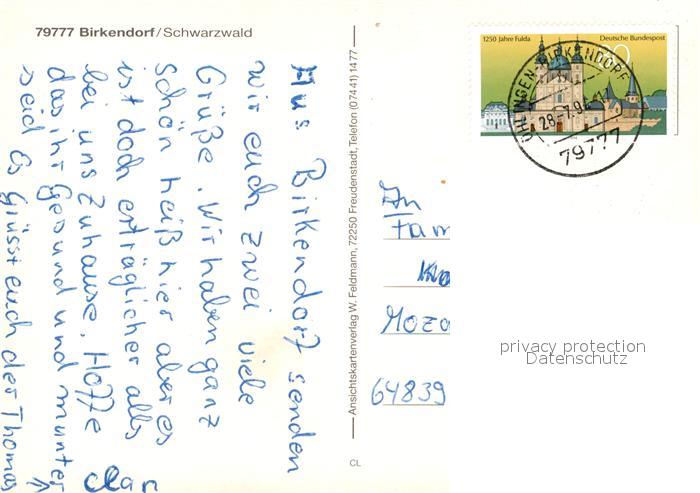 79777 Birkendorf/Schwarzwald
Aus Birkendorf senden
wir euch zwei viele
Grüße. Wir haben ganz
schön heiß hier aber es
ist doch erträglicher als
bei uns Zuhause. Hoffe
das ihr Gesund und munter
seid Es Grüsst euch der Thomas
Ansichtskartenverlag W. Feldmann, 72250 Freudenstadt, Telefon (07441) 1477
CL
1250 Jahre Fulda
Deutsche Bundespost
ÜHLINGEN-BIRKENDORF
79777
An
Fam
Moza
64839
privacy protection
Datenschutz